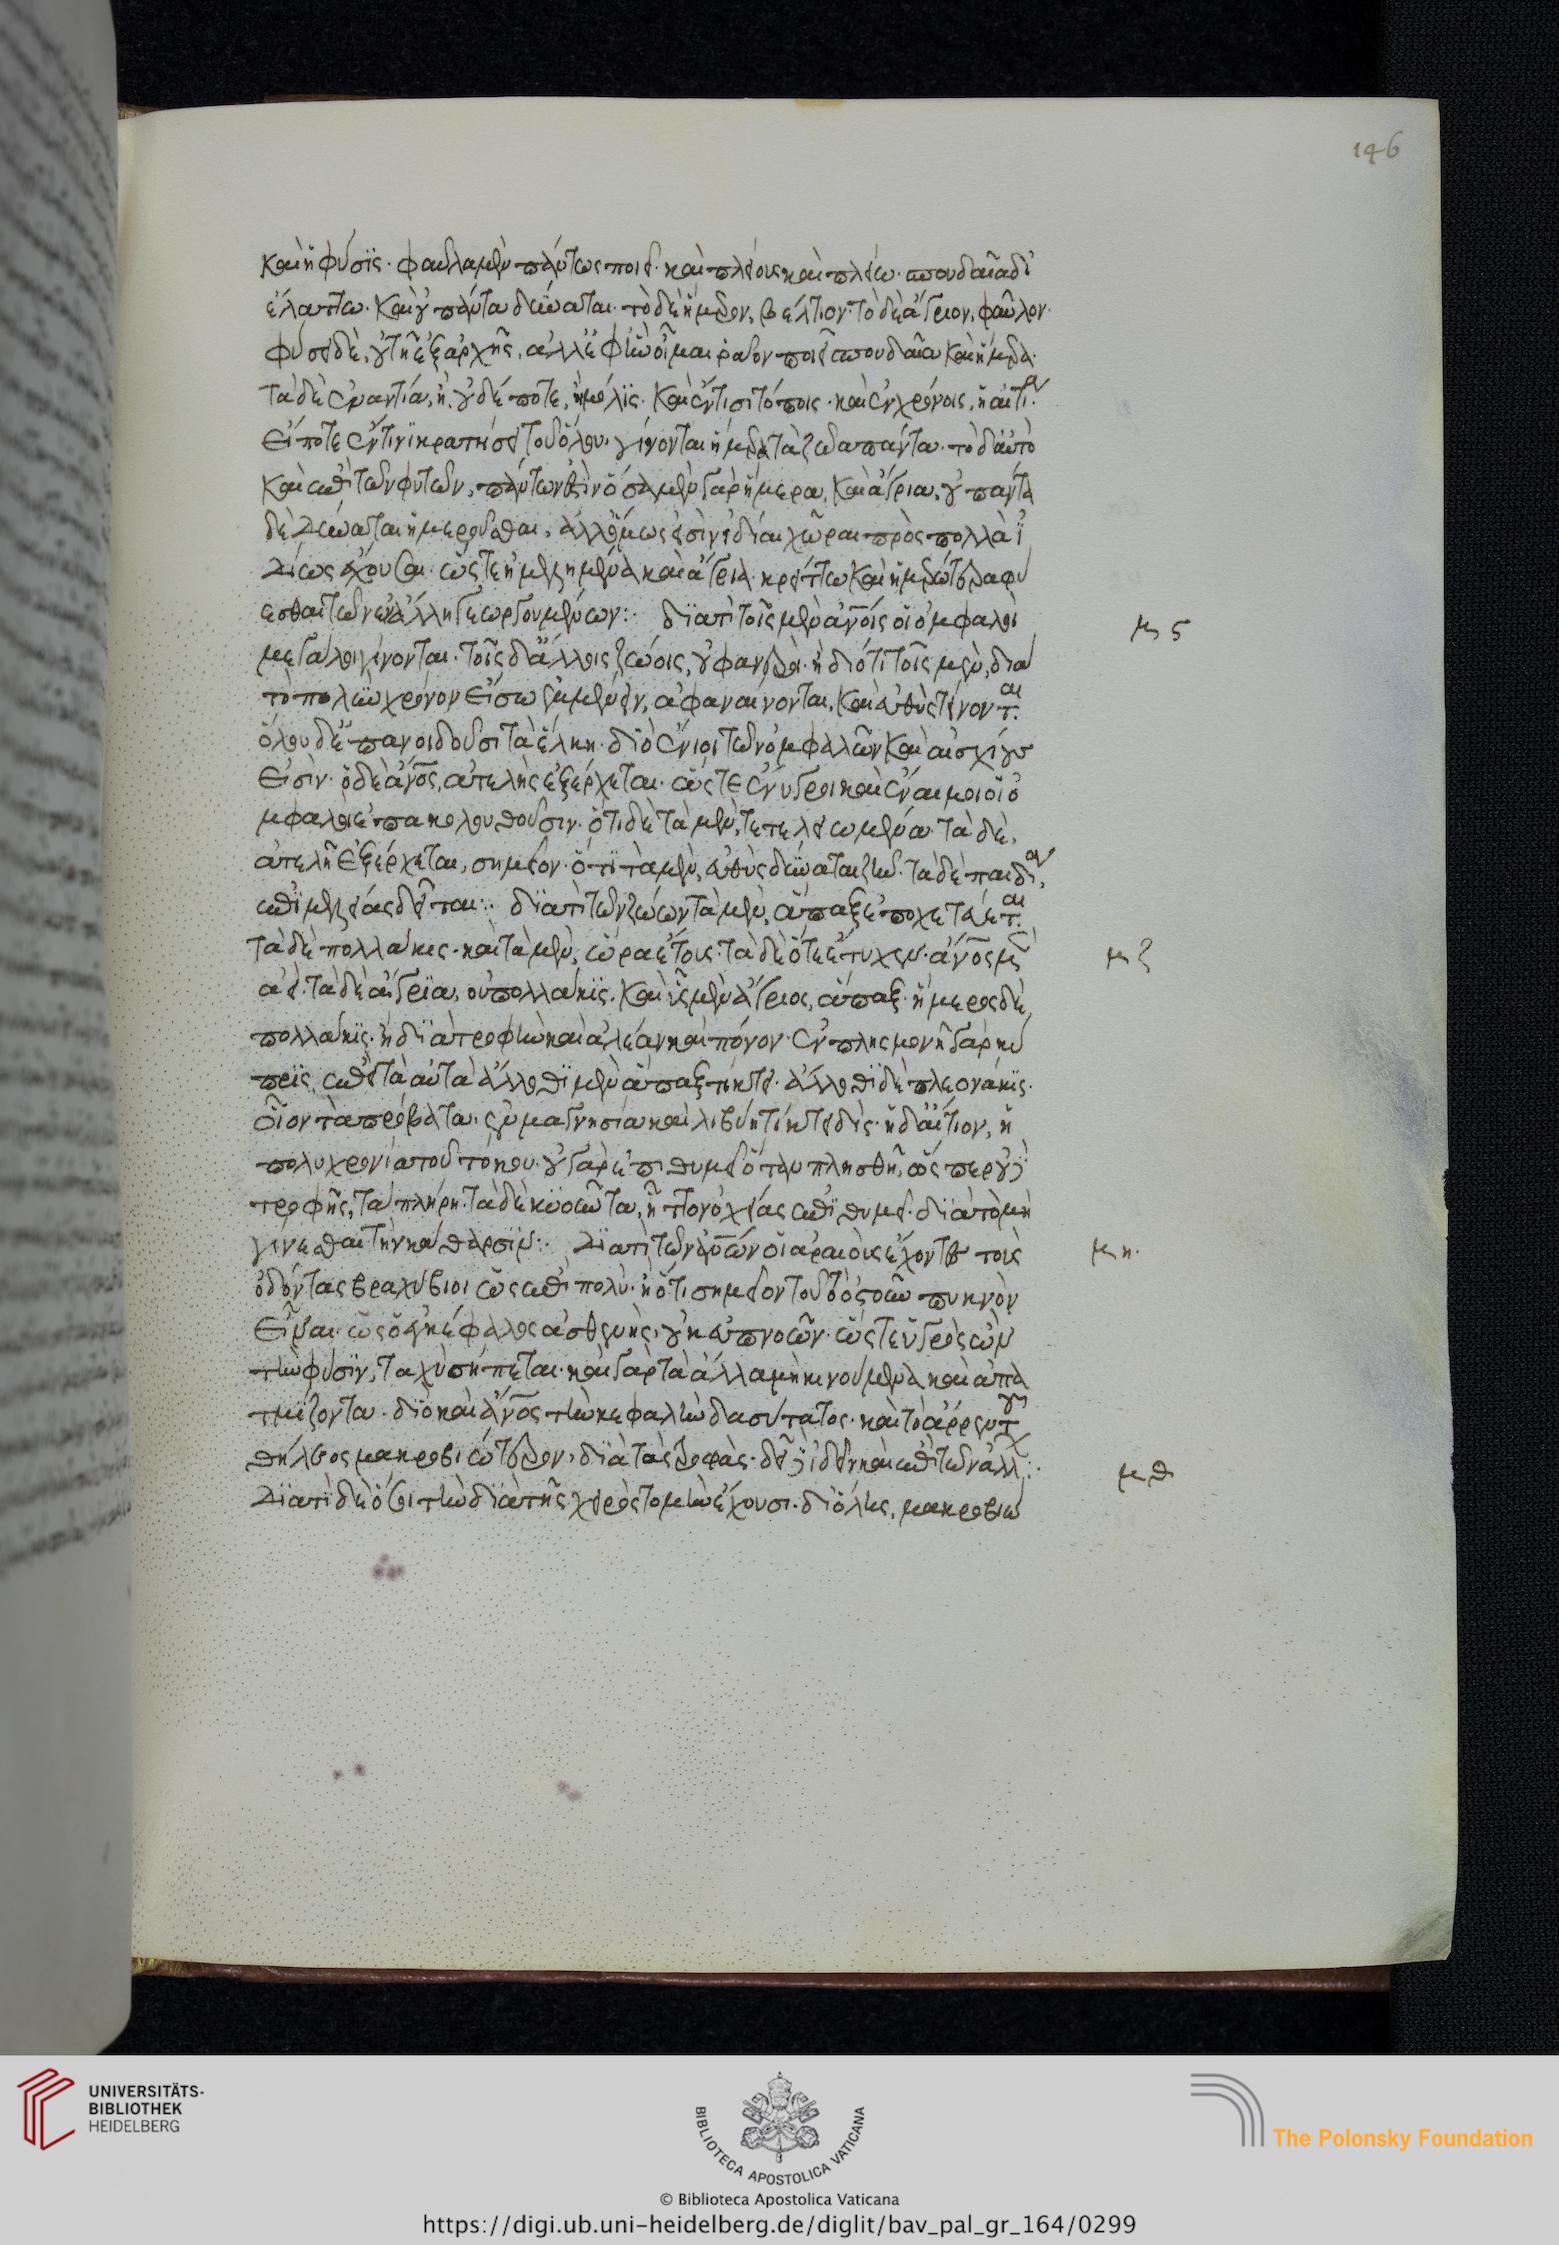 καὶ ἡ φύσις· φαῦλα μὲν πάντως ποιεῖ· καὶ πλείους καὶ πλείω· σπουδαῖα δ'
ἐλάττω· καὶ οὐ πάντα δύναται· τὸ δὲ ἥμερον, βέλτιον· τὸ δὲ ἄγριον, φαῦλον·
φύσει δὲ, οὐ τῆ ἐξαρχῆς, ἀλλ' ἐφ' ἣν οἶμαι ῥᾶον ποιεῖ σπουδαῖα καὶ ἥμερα·
τὰ δὲ ἐναντία, ἢ οὐδέποτε, ἢ μόλις· καὶ ἔν τισι τόποις· καὶ ἐν χρόνοις,
εἴ ποτε ἔν τινι κρατήσει τοῦ ὅλου· γίνονται ἥμερα τὰ ζῶα πάντα· τὸ δ' αὐτὸ
καὶ ἐπὶ τῶν φυτῶν, πάντων ἐστὶν ὅσα μὲν γὰρ ἥμερα, καὶ ἄγρια, οὐ πάντα
δὲ δύναται ἡμεροῦσθαι, ἀλλ' ὅμως εἰσὶν ἰδίαι χῶραι πρὸς πολλὰ ἰ
δίως ἔχουσαι· ὥστε ἠμελημένα καὶ ἄγρια κρείττω καὶ ἡμερώτερα φύ
εσθαι τῶν ἐν ἄλλη γεωργουμένων:· διατί τοῖς μὲν ἀνοις οἱ ὀμφαλοὶ
μεγάλοι γίνονται· τοῖς δ' ἄλλοις ζώοις, οὐ φανεροὶ· ἢ διότι τοῖς μὲν, διὰ
τὸ πολὺν χρόνον εἴσω ἐμμένειν, ἀφαναίνονται, καὶ εὐθὺς
ὅλου δὲ ἐπανοιδοῦσι τὰ ἕλκη· διὸ ἔνιοι τῶν ὀμφαλῶν καὶ αἰσχίους
εἰσὶν· ὁ δὲ ἀνος, ἀτελὴς ἐξέρχεται· ὥστε ἔνυγροι καὶ ἔναιμοι οἱ ὀ
μφαλοὶ ἐπακολουθοῦσιν· ὅτι δὲ τὰ μὲν, τετελειωμένα· τὰ δὲ,
ἀτελῆ ἐξέρχεται, σημεῖον· ὅτι τὰ μὲν, εὐθὺς δύναται ζῆν· τὰ δὲ παιδία,
ἐπιμελείας δεῖται:· διατί τῶν ζώων τὰ μὲν, ἅπαξ ἐποχεύεται·
τὰ δὲ πολλάκις· καὶ τὰ μὲν, ὥρα ἔτους· τὰ δὲ ὅτε ἔτυχεν· ἀνος μὲν
ἀεί· τὰ δὲ ἄγρια, οὐ πολλάκις· καὶ ὗς μὲν ἄγριος, ἅπαξ· ἥμερος δὲ,
πολλάκις· ἢ διὰ τροφὴν καὶ ἀλέαν καὶ πόνον· ἐν πλησμονῆ γὰρ κύ
πρις ἐπεὶ τὰ αὐτὰ ἄλλοθι μὲν ἅπαξ τίκτει· ἄλλοθι δὲ πλεονάκις·
οἷον τὰ πρόβατα, ἐν μαγνησία καὶ λιβύη τίκτει δὶς· ἡ δ' αἴτιον, ἡ
πολυχρονία τοῦ τόκου· οὐ γὰρ ἐπιθυμεῖ ὅταν πλησθῆ, ὥσπερ οὐδὲ
τροφῆς, τὰ πλήρη· τὰ δὲ κύοντα, ἧττον ὀχείας ἐπιθυμεῖ· διὰ τὸ μὴ
γίνεσθαι τὴν κάθαρσιν:· διατί τῶν ἀνων οἱ ἀραιοὺς ἔχοντες τοὺς
ὀδόντας βραχύβιοι ὡς ἐπιπολύ· ἢ ὅτι σημεῖον τοῦ τὸ ὀστοῦν πυκνὸν
εἶναι· ὡς ὁ ἐγκέφαλος ἀσθενὴς, οὐκ εὐπνοῶν· ὥστε ὑγρὸς ὢν
τὴν φύσιν, ταχὺ σήπεται· καὶ γὰρ τὰ ἄλλα μὴ κινούμενα καὶ ἀπα
τμίζοντα· διὸ καὶ ἀνος τὴν κεφαλὴν δασύτατος· καὶ τὸ ἄρρεν τοῦ
θήλεος μακροβιώτερον, διὰ τὰς ῥαφάς· δεῖ δὲ ἰδεῖν καὶ ἐπὶ τῶν ἄλλ:·
διατί δὲ ὅσοι τὴν διὰ τῆς χειρὸς τομὴν ἔχουσι δι' ὅλης, μακροβιώ
146
μ ϛ
μ ζ
μ η·
μ θ
UNIVERSITÄTS-
BIBLIOTHEK
HEIDELBERG
BIBLIOTECA APOSTOLICA VATICANA
The Polonsky Foundation
© Biblioteca Apostolica Vaticana
https://digi.ub.uni-heidelberg.de/diglit/bav_pal_gr_164/0299